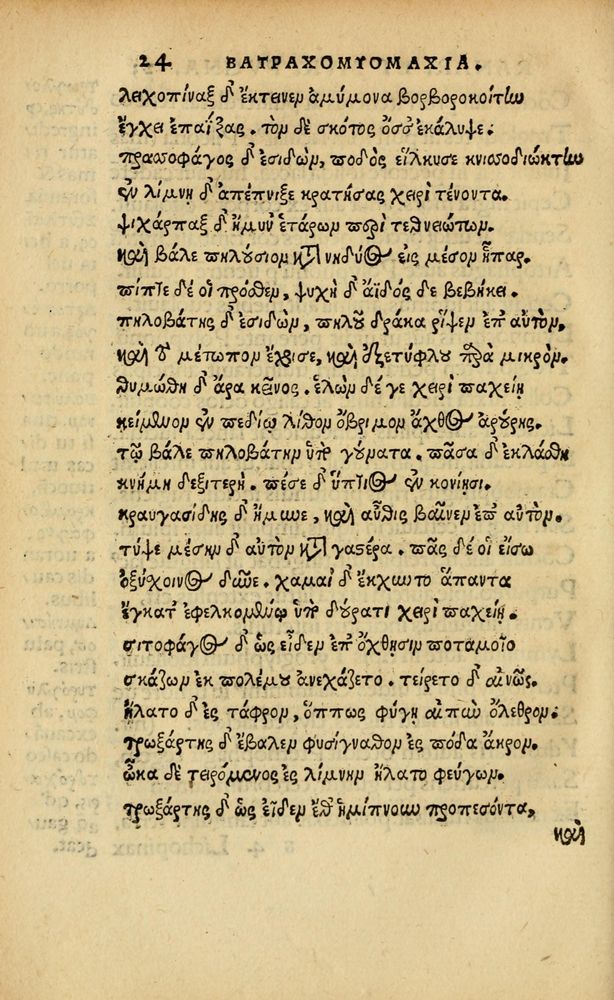 24 ΒΑΤΡΑΧΟΜΥΟΜΑΧΙΑ.
λειχοπίναξ δ' ἔκτανεν ἀμύμονα βορβοροκοίτην
ἔγχει ἐπαΐξας. τὸν δὲ σκότος ὄσσ' ἐκάλυψε.
πρασσοφάγος δ' ἐσιδὼν, ποδὸς εἵλκυσε κνισσοδιώκτην
ἐν λίμνῃ δ' ἀπέπνιξε κρατήσας χειρὶ τένοντα.
ψιχάρπαξ δ' ἤμυν' ἑτάρων περὶ τεθνειώτων.
καὶ βάλε πηλούσιον κατὰ νηδύος εἰς μέσον ἧπαρ.
πίπτε δέ οἱ πρόσθεν, ψυχὴ δ' ἀϊδόσδε βεβήκει.
πηλοβάτης δ' ἐσιδὼν, πηλοῦ δράκα ῥίψεν ἐπ' αὐτὸν.
καὶ τὸ μέτωπον ἔχρισε, καὶ ἐξετύφλου παρὰ μικρὸν.
θυμώθη δ' ἄρα κεῖνος. ἑλὼν δέ γε χειρὶ παχείῃ
κείμενον ἐν πεδίῳ λίθον ὄβριμον ἄχθος ἀρούρης.
τῷ βάλε πηλοβάτην ὑπὸ γούνατα. πᾶσα δ' ἐκλάσθη
κνήμη δεξιτερὴ. πέσε δ' ὕπτιος ἐν κονίῃσι.
κραυγασίδης δ' ἤμυνε, καὶ αὖθις βαῖνεν ἐπ' αὐτὸν.
τύψε μέσην δ' αὐτὸν κατὰ γαστέρα. πᾶς δέ οἱ εἴσω
ὀξύσχοινος ἔδυνε. χαμαὶ δ' ἔκχυντο ἅπαντα
ἔγκατ' ἐφελκομένῳ ὑπὸ δούρατι χειρὶ παχείῃ.
σιτοφάγος δ' ὡς εἶδεν ἐπ' ὄχθῃσιν ποταμοῖο
σκάζων ἐκ πολέμου ἀνεχάζετο. τείρετο δ' αἰνῶς.
ἥλατο δ' ἐς τάφρον, ὅππως φύγῃ αἰπὺν ὄλεθρον.
τρωξάρτης δ' ἔβαλεν φυσίγναθον ἐς πόδα ἄκρον.
ὦκα δὲ τειρόμενος ἐς λίμνην ἥλατο φεύγων.
τρωξάρτης δ' ὡς εἶδεν ἔθ' ἡμίπνουν προπεσόντα,
καὶ